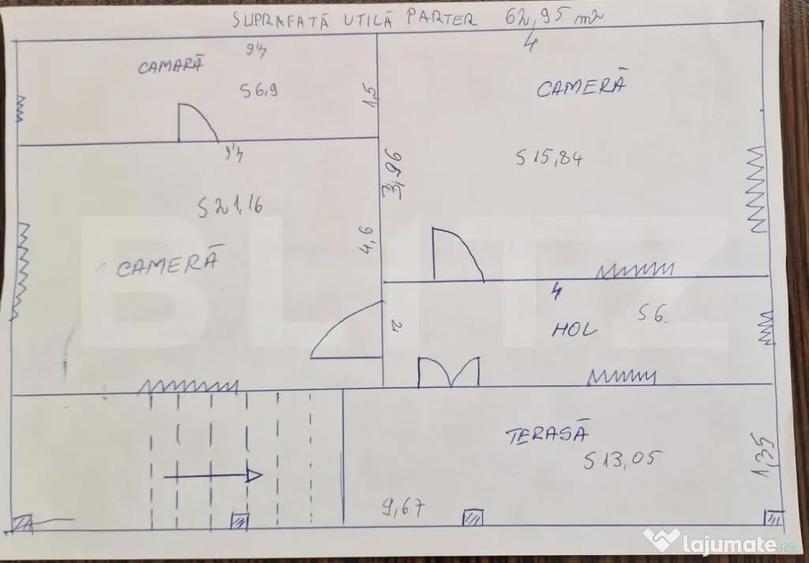 SUPRAFAȚĂ UTILĂ PARTER 62,95 m2
4,6
4
CAMARĂ
S6,9
1,5
CAMERĂ
4,6
3,96
S 15,84
S 21,16
4,6
CAMERĂ
4
2
HOL
S 6
TERASĂ
S 13,05
1,35
9,67
BLITZ
lajumate.ro